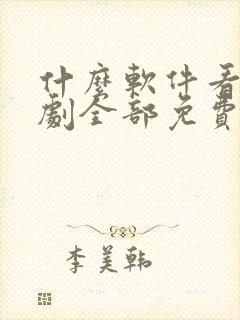 什麼軟件看
劇全部免費
李美韩